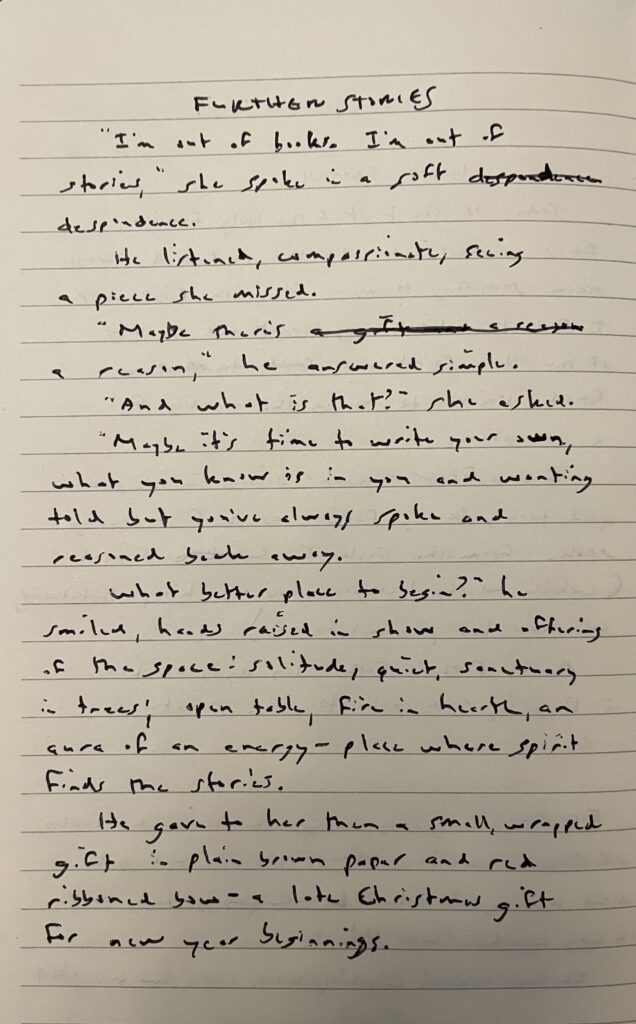 FURTHER STORIES
"I'm out of books. I'm out of
stories," she spoke in a soft despondence
despondence.
He listened, compassionate, seeing
a piece she missed.
"Maybe there's a gift and a reason
a reason," he answered simple.
"And what is that?" she asked.
"Maybe it's time to write your own,
what you know is in you and wanting
told but you've always spoke and
reasoned back away.
What better place to begin?" he
smiled, hands raised in show and offering
of the space: solitude, quiet, sanctuary
in trees; open table, fire in hearth, an
aura of an energy - place where spirit
finds the stories.
He gave to her then a small, wrapped
gift in plain brown paper and red
ribboned bow - a late Christmas gift
for new year beginnings.